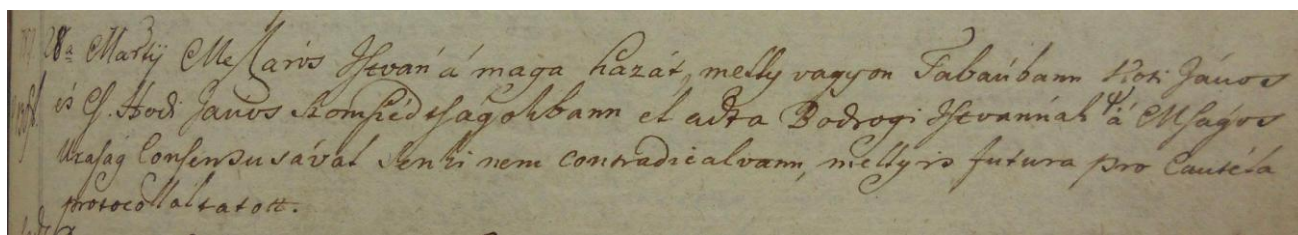 28a Martij Meſsaros Istvan á maga házát, melly vagyon Tabaúbann Koti János
és Cs. Hodi János szomszédtságokbann el adta Bodrogi Istvannak á Mságos
Uraság Consensusával senki nem contradicalvann, melly is futura pro Cautela
protocolláltatott.